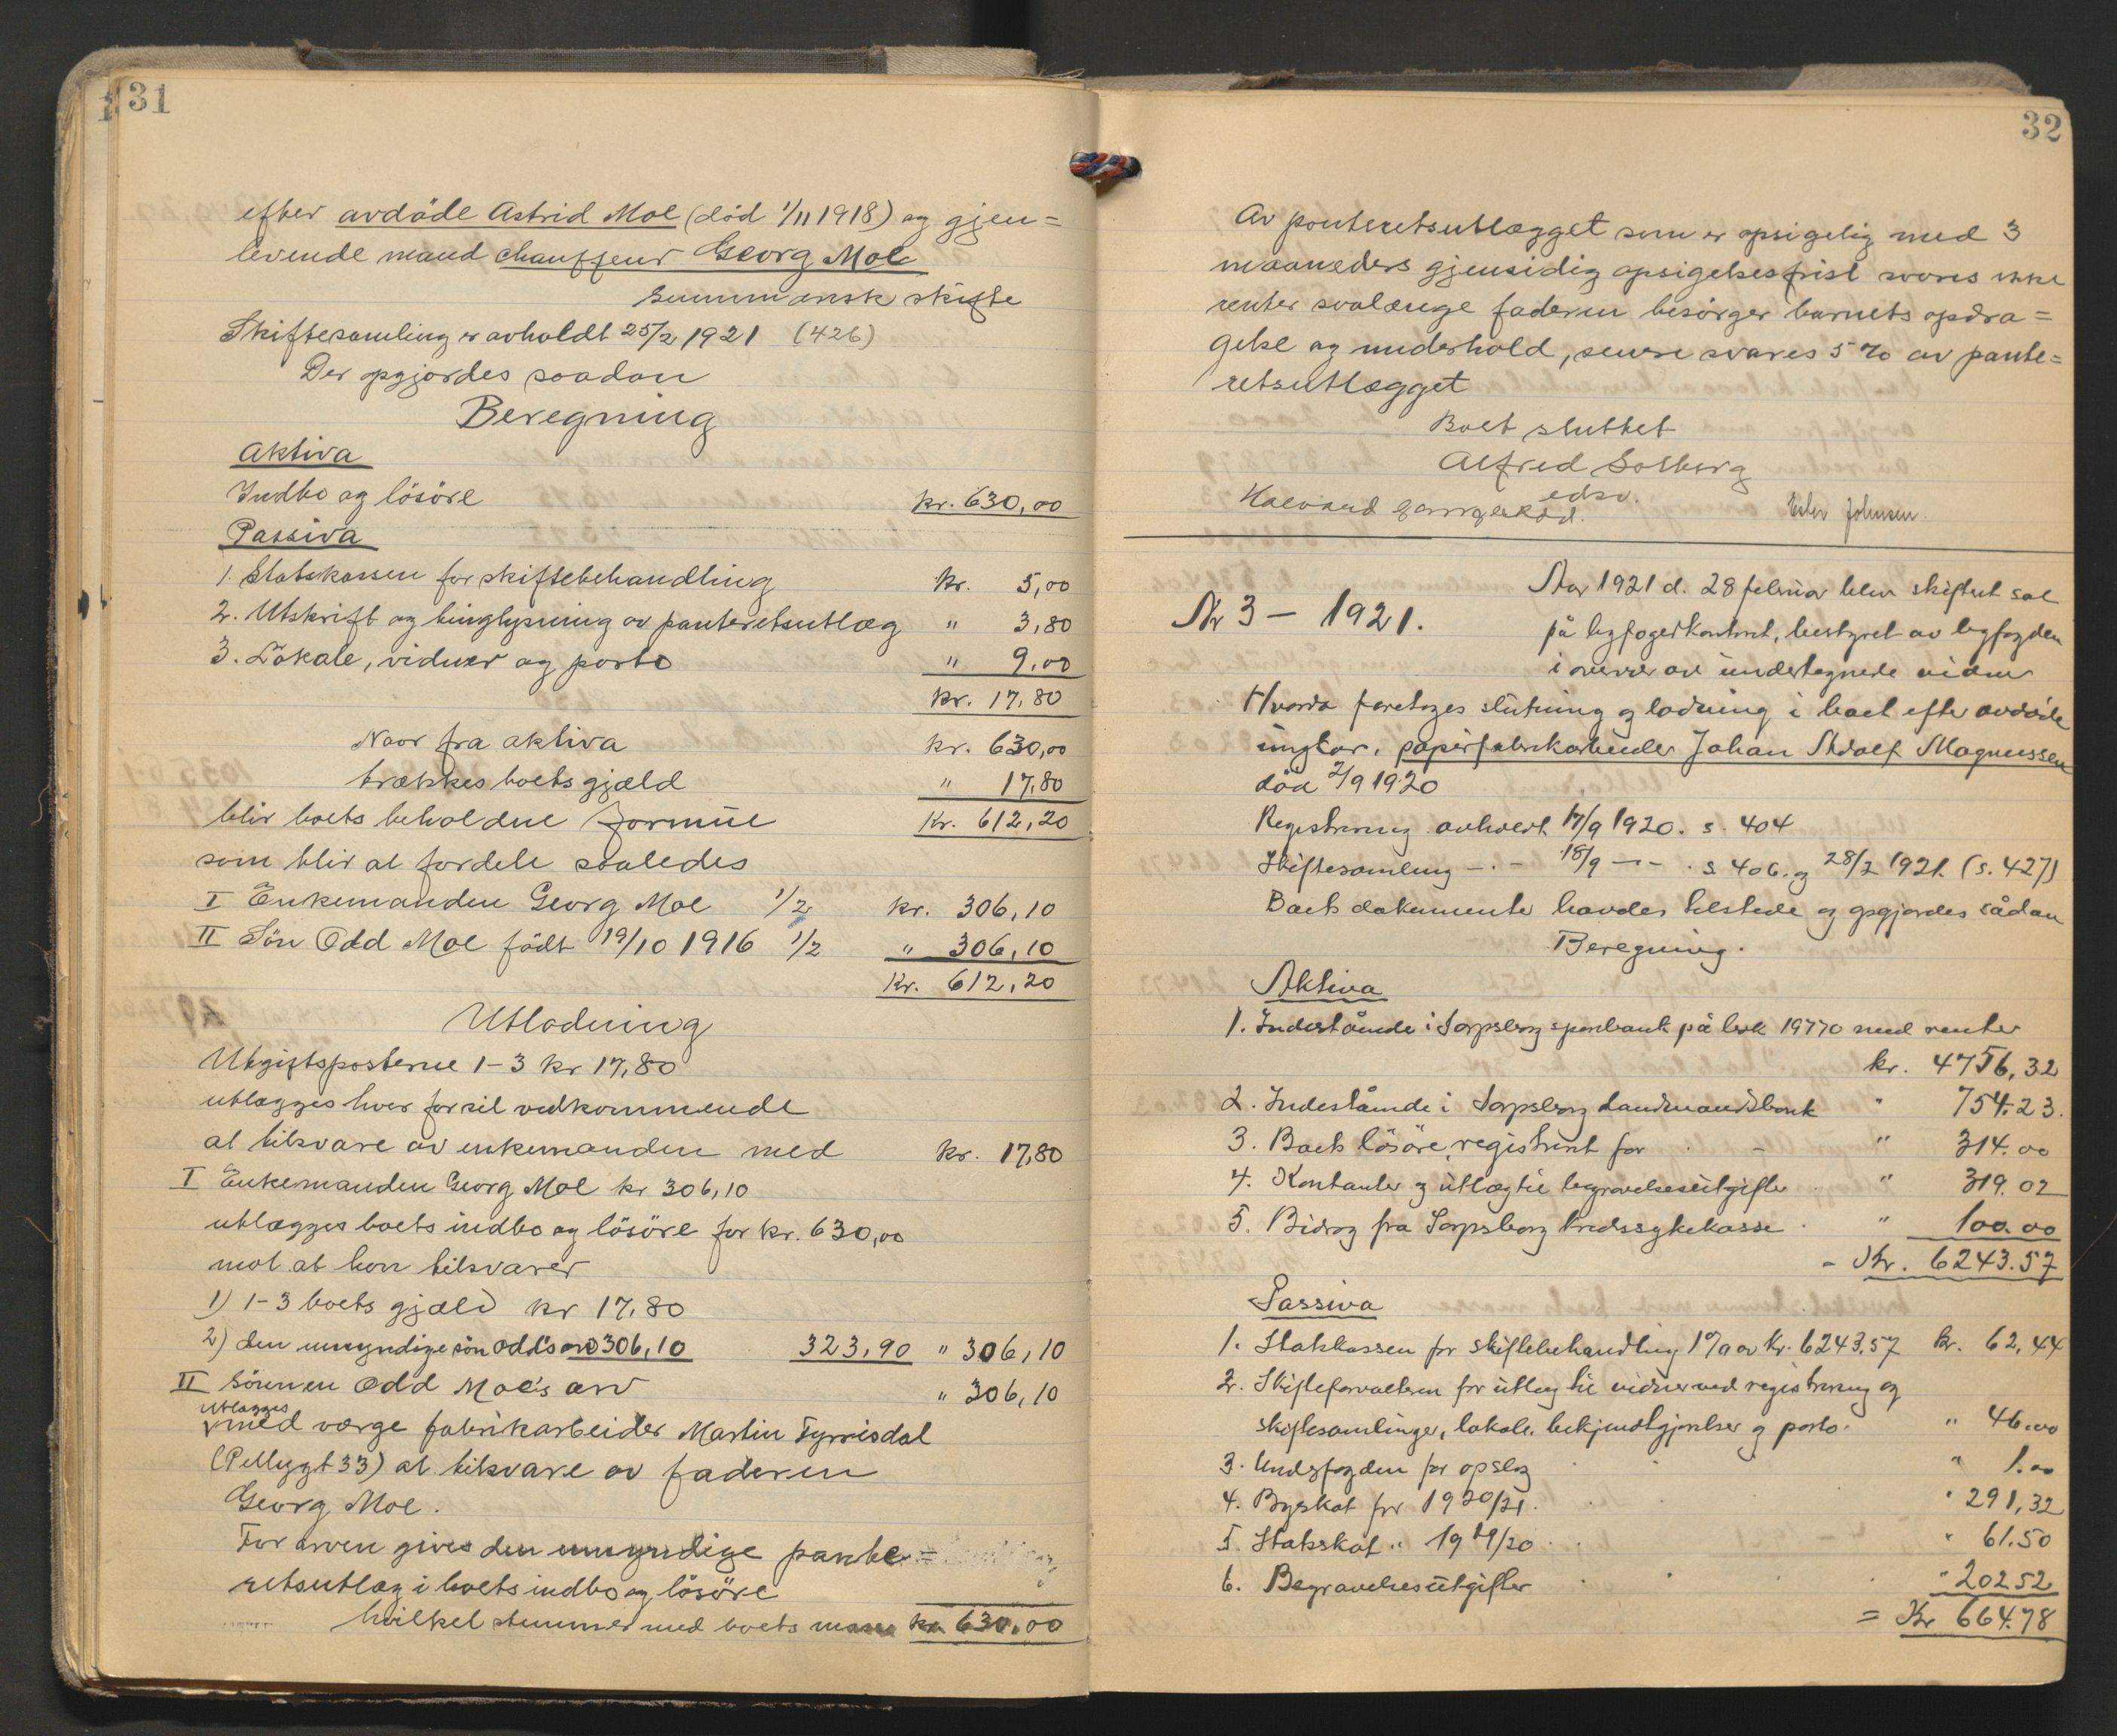 31
efter avdöde Astrid Moe (död 1/11 1918) og gjen=
levende mand chauffeur Georg Moe
summarisk skifte
Skiftesamling er avholdt 25/2 1921 (426)
Der opgjordes saadan
Beregning
Aktiva
Indbo og lösöre kr. 630,00
Passiva
1. Statskassen for skiftebehandling kr. 5,00
2. Utskrift og tinglysning av panteretsutlæg " 3,80
3. Lokale, vidner og porto " 9,00
kr. 17,80
Naar fra aktiva kr. 630,00
trækkes boets gjæld " 17,80
blir boets beholdne formue Kr. 612,20
som blir at fordele saaledes
I Enkemanden Georg Moe 1/2 kr. 306,10
II Sön Odd Moe födt 19/10 1916 1/2 " 306,10
Kr. 612,20
Utlodning
Utgiftsposterne 1-3 kr 17,80
utlægges hver for sit vedkommende
at tilsvare av enkemanden med kr. 17,80
I Enkemanden Georg Moe kr 306,10
utlægges boets indbo og lösöre for kr. 630,00
mot at han tilsvarer
1) 1-3 boets gjæld kr 17,80
2) den umyndige sön Odd's arv 306,10 323,90 " 306,10
II Sönnen Odd Moe's arv " 306,10
utlægges
med værge fabrikarbeider Martin Tyrrisdal
(Pellygt 33) at tilsvare av faderen
Georg Moe.
For arven gives den umyndige pante=
retsutlæg i boets indbo og lösöre
hvilket stemmer med boets masse kr 630,00
32
Av panteretsutlægget som er opsigelig med 3
maaneders gjensidig opsigelsesfrist svares ikke
renter saalænge faderen besörger barnets opdra=
gelse og underhold, senere svares 5 % av pante=
retsutlægget
Boet sluttet
Alfred Solberg
edsv.
Halvard Ester Johnsen.
Nr 3 – 1921.
Aar 1921 d. 28 februar blev skifteret sat
på byfogedkontoret, bestyret av byfogden
i overvær av undertegnede vidner
Hvorda foretoges slutning og lodning i boet efter avdöde
ungkar, papirfabrikarbeider Johan Adolf Magnussen
död 2/9 1920
Registrering avholdt 17/9 1920. s. 404
Skiftesamling –.– 18/9 –.– . s 406. og 28/2 1921. (s. 427)
Boets dokumenter havdes tilstede og opgjordes sådan
Beregning.
Aktiva
1. Indestående i Sarpsborg sparebank på bok 19770 med renter
kr. 4756,32
2. Indestående i Sarpsborg Landmandsbank " 754.23.
3. Boets lösöre, registrert for " 314.00
4. Kontanter og utlæg til begravelsesutgifter " 319.02
5. Bidrag fra Sarpsborg kredssykekasse " 100.00
- Kr. 6243.57
Passiva
1. Statskassen for skiftebehandling 1% av kr. 6243,57 kr. 62,44
2. Skifteforvalteren for utlæg til vidner ved registrering og
skiftesamlinger, lokale, bekjendtgjörelser og porto. " 46.00
3. Underfogden for opslag " 1.00
4. Byskat for 1920/21. " 291,32
5. Statsskat " 1919/20 " 61.50
6. Begravelsesutgifter " 202 52
= Kr 664.78